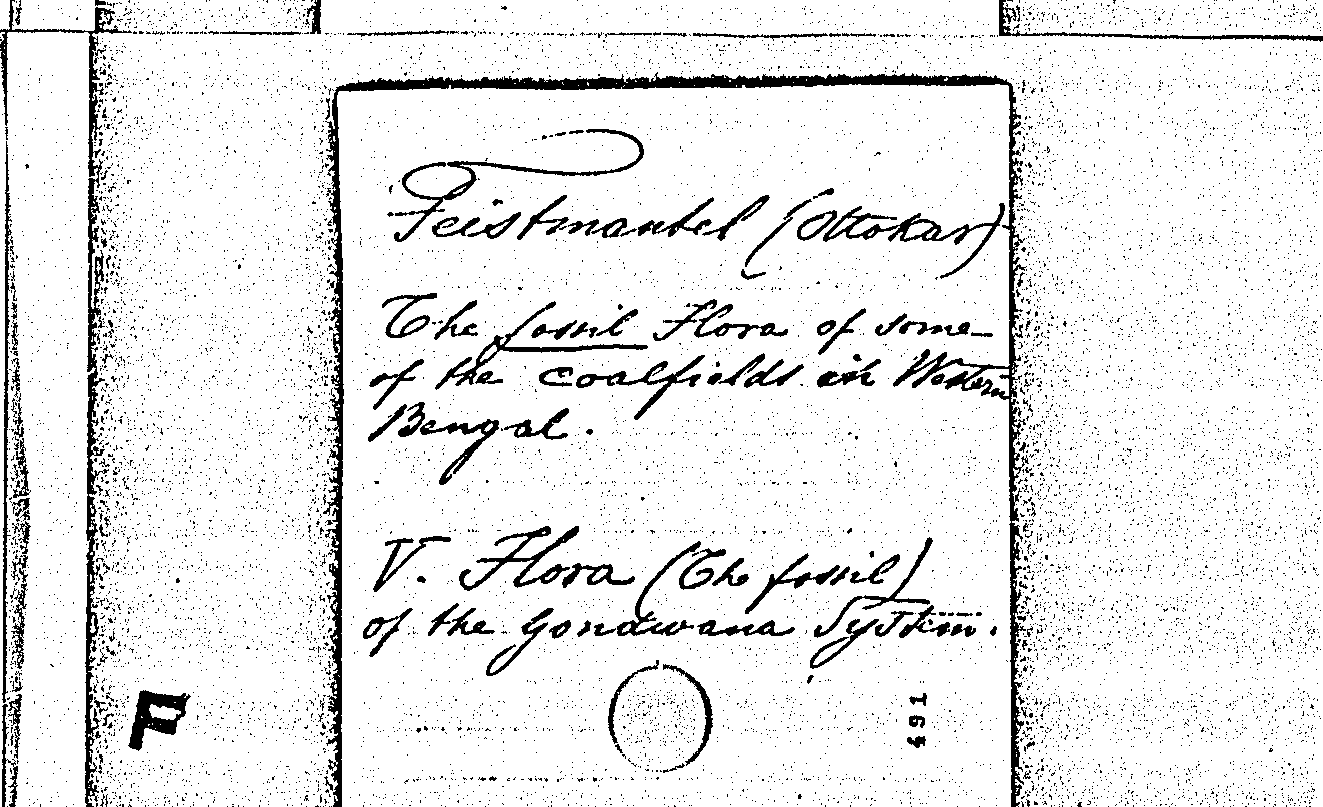 Feistmantel (Ottokar)
The fossil Flora of some
of the coalfields in Western
Bengal.
V. Flora (The fossil)
of the Gondwana System.
F